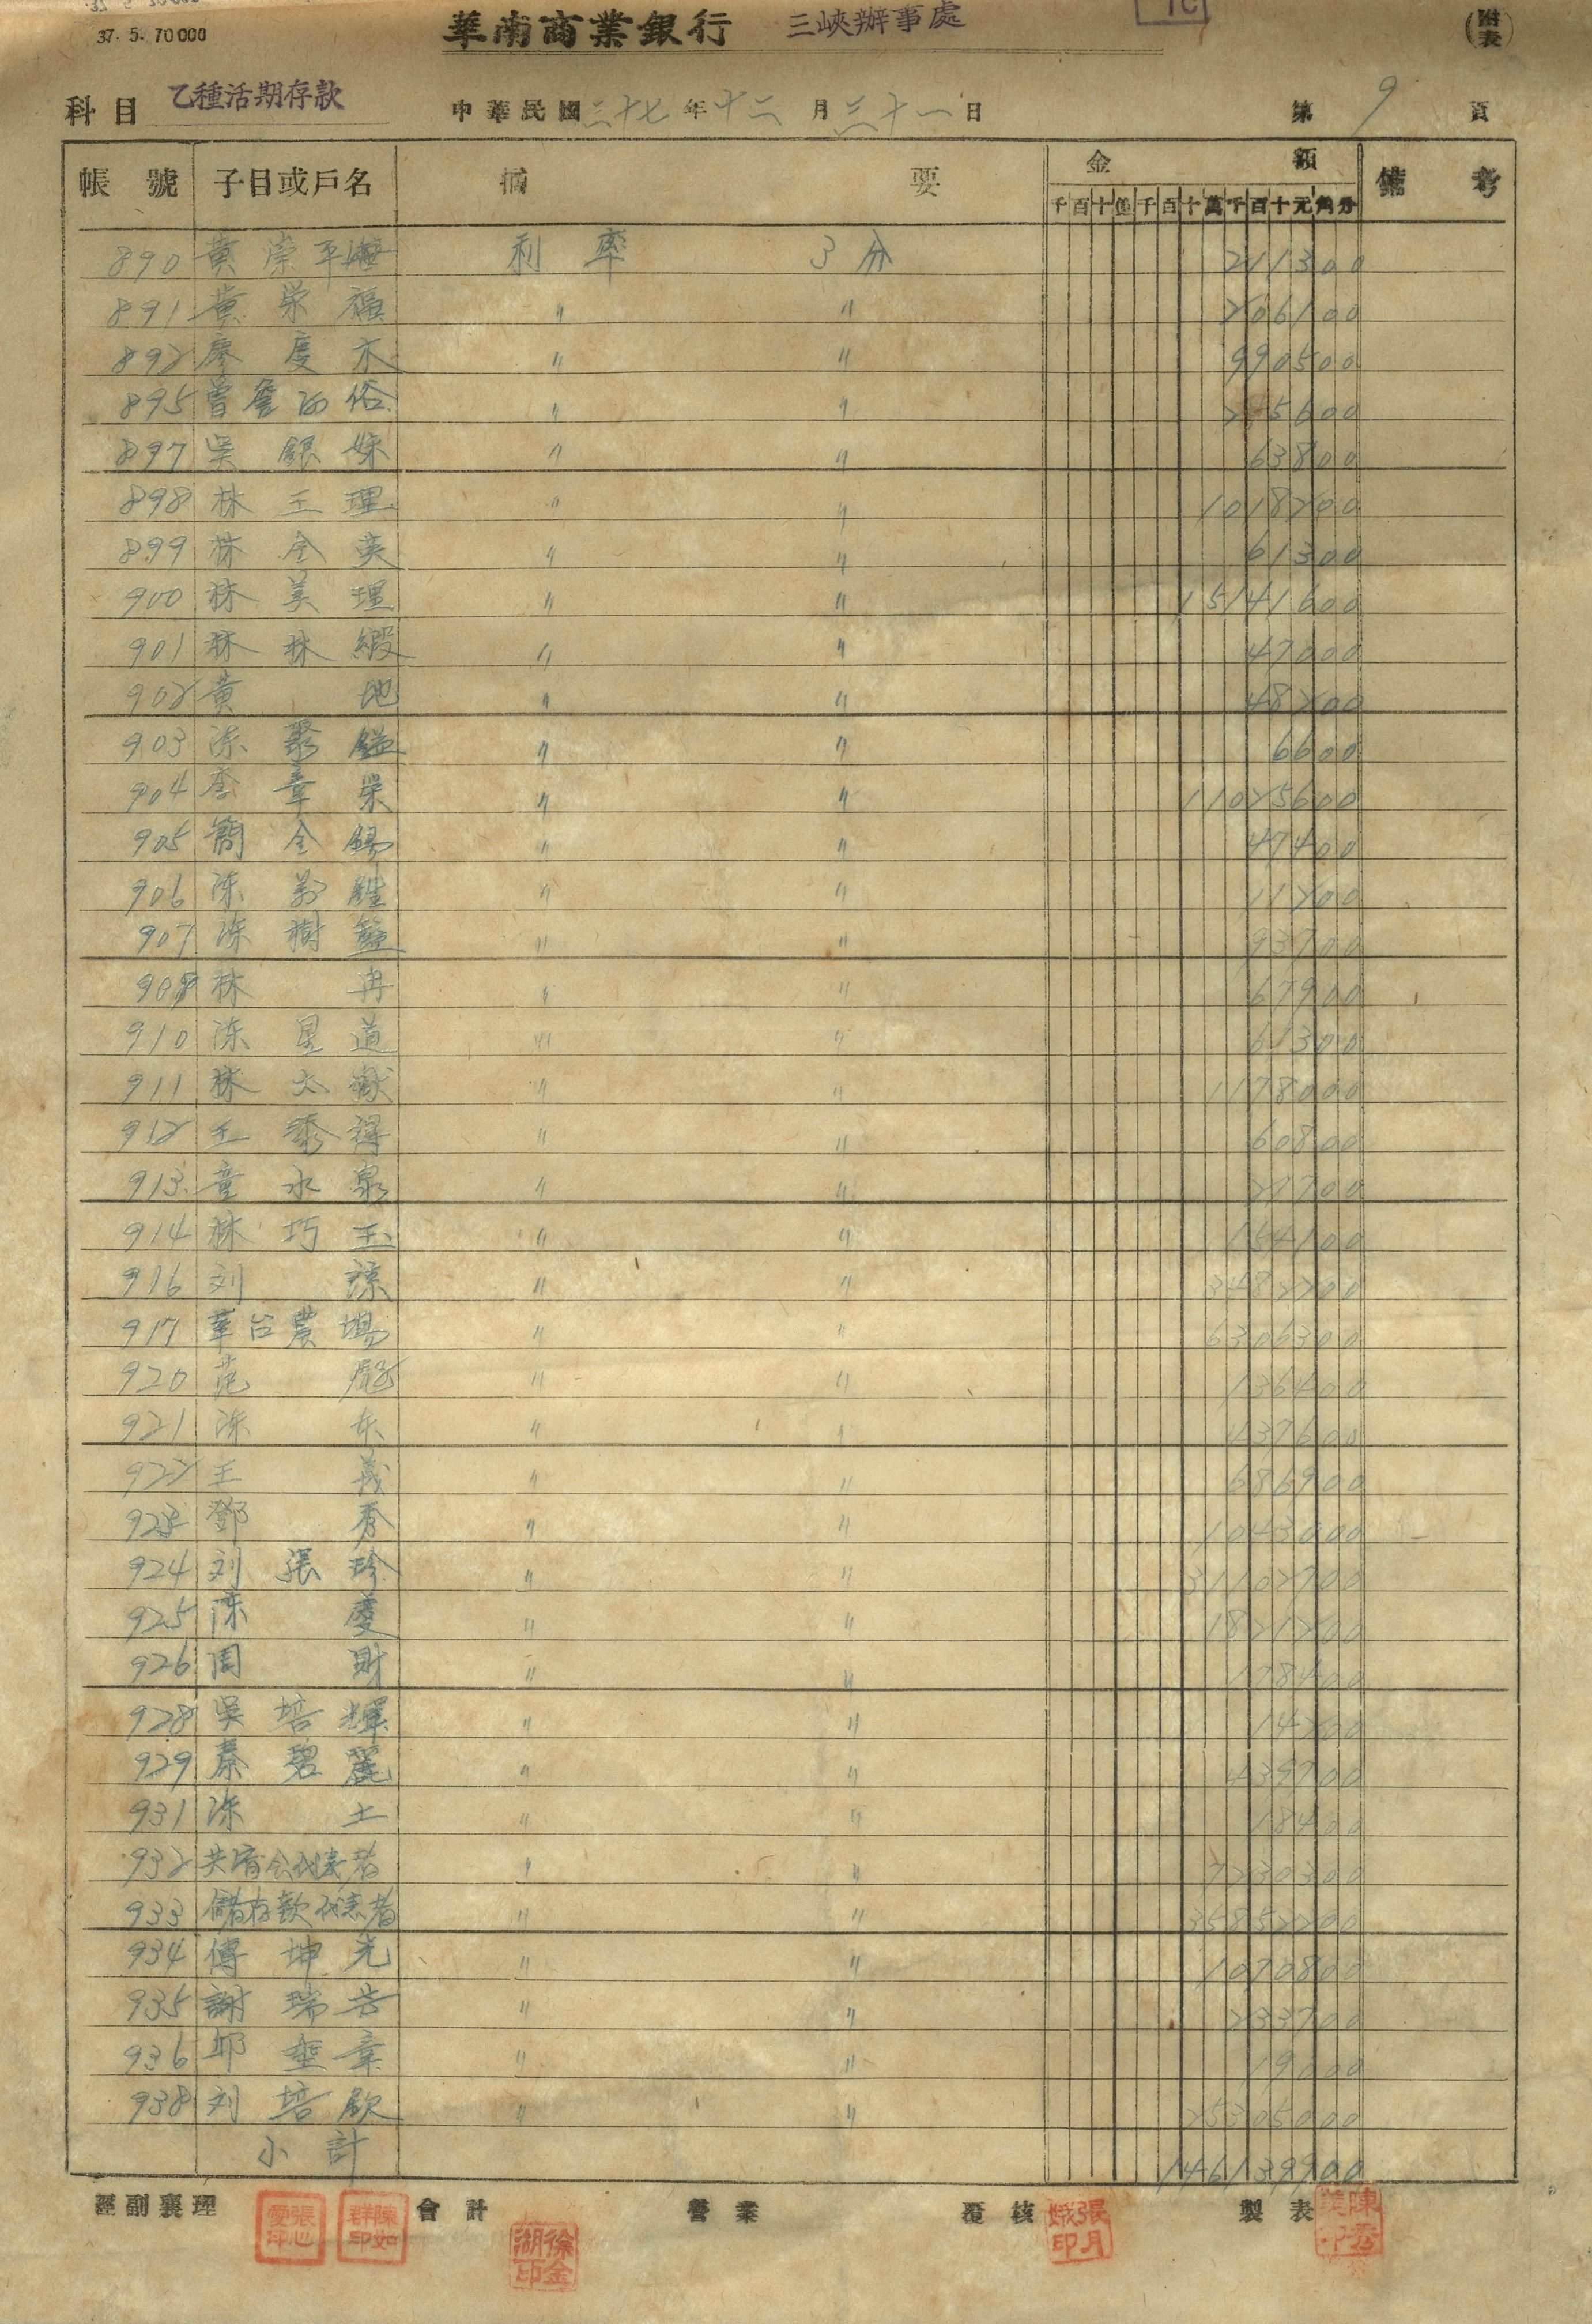 37. 5. 70000
華南商業銀行 三峽辦事處
(附表)
科目 乙種活期存款 中華民國三十七年十二月三十一日 第9頁
帳號 子目或戶名 摘要 金額 備考
千百十億千百十萬千百十元角分
890 黃 利率 3分 211300
891 黃榮福 〃 〃 206100
892 廖度木 〃 〃 990500
895 曾詹 〃 〃
897 吳銀妹 〃 〃 63800
898 林王理 〃 〃 1018200
899 林金英 〃 〃 61300
900 林美理 〃 〃 15141600
901 林林緞 〃 〃 47000
902 黃地 〃 〃 48200
903 陳聚鎰 〃 〃 6600
904 李章榮 〃 〃 11025600
905 簡金錫 〃 〃 47400
906 陳 〃 〃 11200
907 陳樹 〃 〃 93700
908 林冉 〃 〃 67900
910 陳星道 〃 〃 61300
911 林太嶽 〃 〃 1178000
912 王添得 〃 〃 60800
913 童永泉 〃 〃 27700
914 林巧玉 〃 〃 154100
916 刘諒 〃 〃 3482200
917 華台農場 〃 〃 6306300
920 范 〃 〃 136400
921 陳东 〃 〃 437600
922 王義 〃 〃 686900
923 鄧秀 〃 〃 1043000
924 刘張珍 〃 〃 31102700
925 陳慶 〃 〃 1821200
926 周財 〃 〃 178400
928 吳培輝 〃 〃 14200
929 秦碧麗 〃 〃 439700
931 陳土 〃 〃 18400
932 共 代表者 〃 〃 7230300
933 儲存款代表者 〃 〃 35852200
934 傅坤光 〃 〃 1070800
935 謝瑞芳 〃 〃 233700
936 邱垂章 〃 〃 19000
938 刘培欽 〃 〃 25305000
小計 146139900
經副襄理 張心愛印 陳如群印 會計 徐金湖印 營業 覆核 張月娥印 製表 陳秀美印